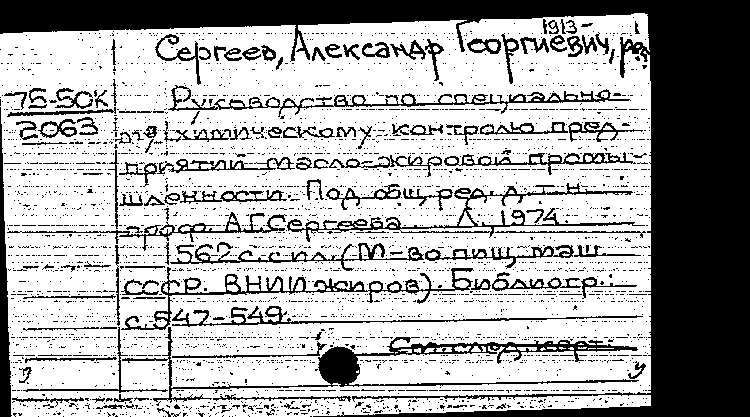 1913-
Сергеев, Александр Георгиевич, ред.
75-50К
2063
Руководство по специально-
химическому контролю пред-
приятий масло-жировой промы-
шленности. Под общ. ред. д. т. н.
проф. А.Г.Сергеева Л., 1974.
562 с. с ил. (М-во пищ. маш.
СССР. ВНИИ жиров). Библиогр.:
с. 547-549.
См. след. карт.